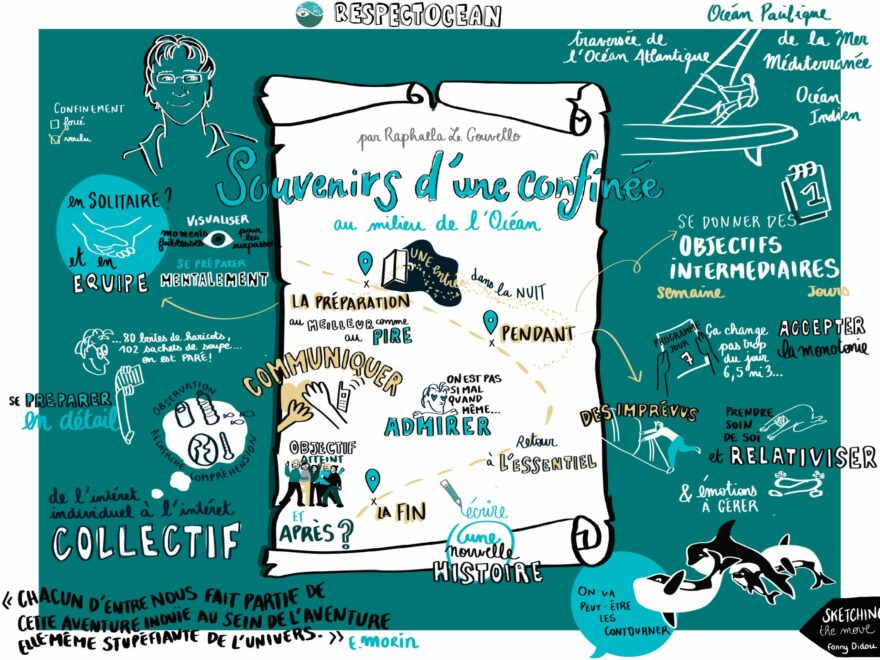 RESPECTOCEAN
Océan Pacifique
traversée de
l'Océan Atlantique
de la Mer
Méditerranée
Océan
Indien
CONFINEMENT
forcé
voulu
par Raphaëla Le Gouvello
Souvenirs d'une confinée
au milieu de l'Océan
en SOLITAIRE ?
et en
EQUIPE
VISUALISER
moments faiblesses
pour les surpasser
SE PRÉPARER
MENTALEMENT
UNE entrée
dans la NUIT
LA PRÉPARATION
au MEILLEUR comme
au PIRE
PENDANT
1
SE DONNER DES
OBJECTIFS
INTERMEDIAIRES
Semaine
Jours
...80 boîtes de haricots,
102 sachets de soupe...
on est PARÉ!
SE PREPARER
en détail
OBSERVATION
RECHERCHE
COMPRÉHENSION
de l'intéret
individuel à l'intéret
COLLECTIF
COMMUNIQUER
ON EST PAS
SI MAL
QUAND
MÊME...
ADMIRER
PROGRAMME
JOUR
7
Ça change
pas trop
du jour
6, 5 ni 3...
ACCEPTER
la monotonie
DES IMPRÉVUS
PRENDRE
SOIN
DE SOI
et RELATIVISER
& émotions
À GÉRER
OBJECTIF
ATTEINT
ET
APRÈS ?
Retour
à L'ESSENTIEL
LA FIN
écrire
une
nouvelle
HISTOIRE
« CHACUN D'ENTRE NOUS FAIT PARTIE DE
CETTE AVENTURE INOUÏE AU SEIN DE L'AVENTURE
ELLE-MÊME STUPÉFIANTE DE L'UNIVERS. »
E. Morin
ON VA
PEUT-ÊTRE
LES
CONTOURNER
SKETCHING
the move
Fanny Didou